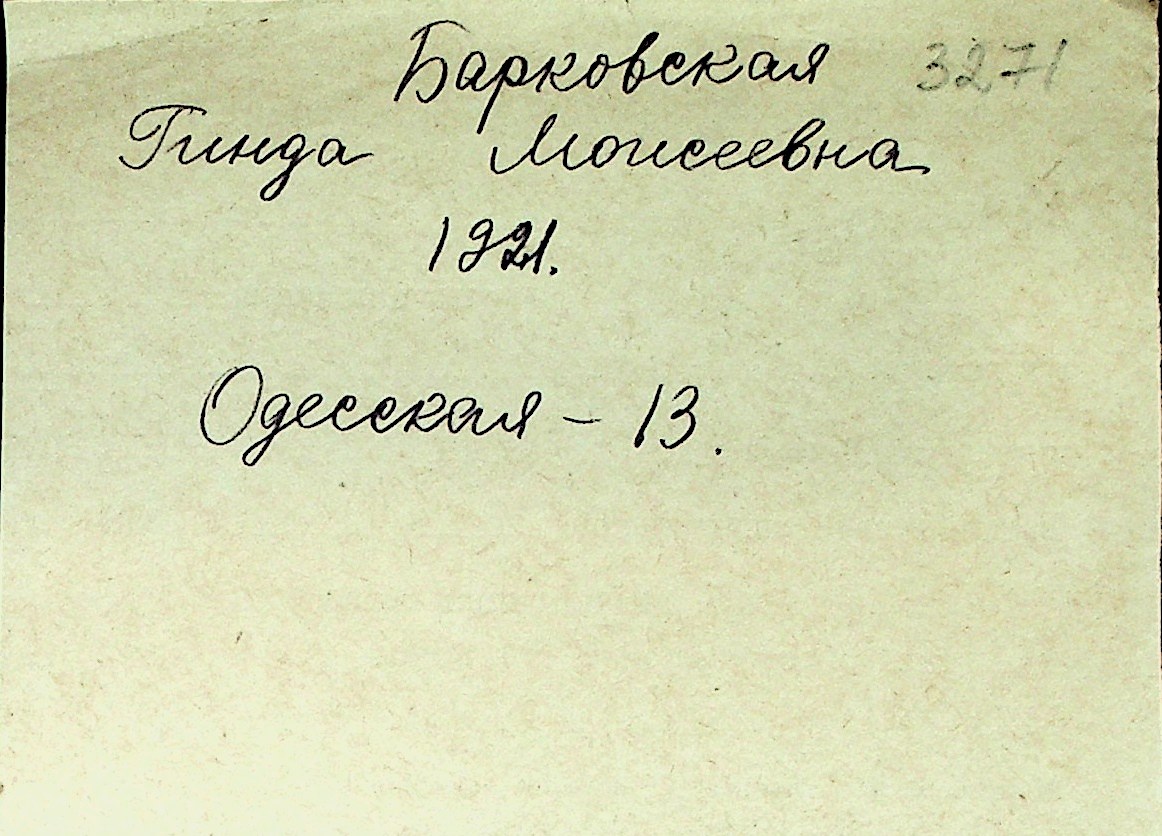 Барковская 3271
Гинда Моисеевна
1921.
Одесская – 13.